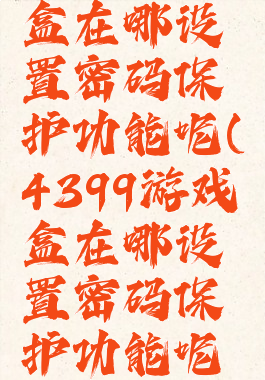 盒在哪设
置密码保
护功能呢(
4399游戏
盒在哪设
置密码保
护功能呢